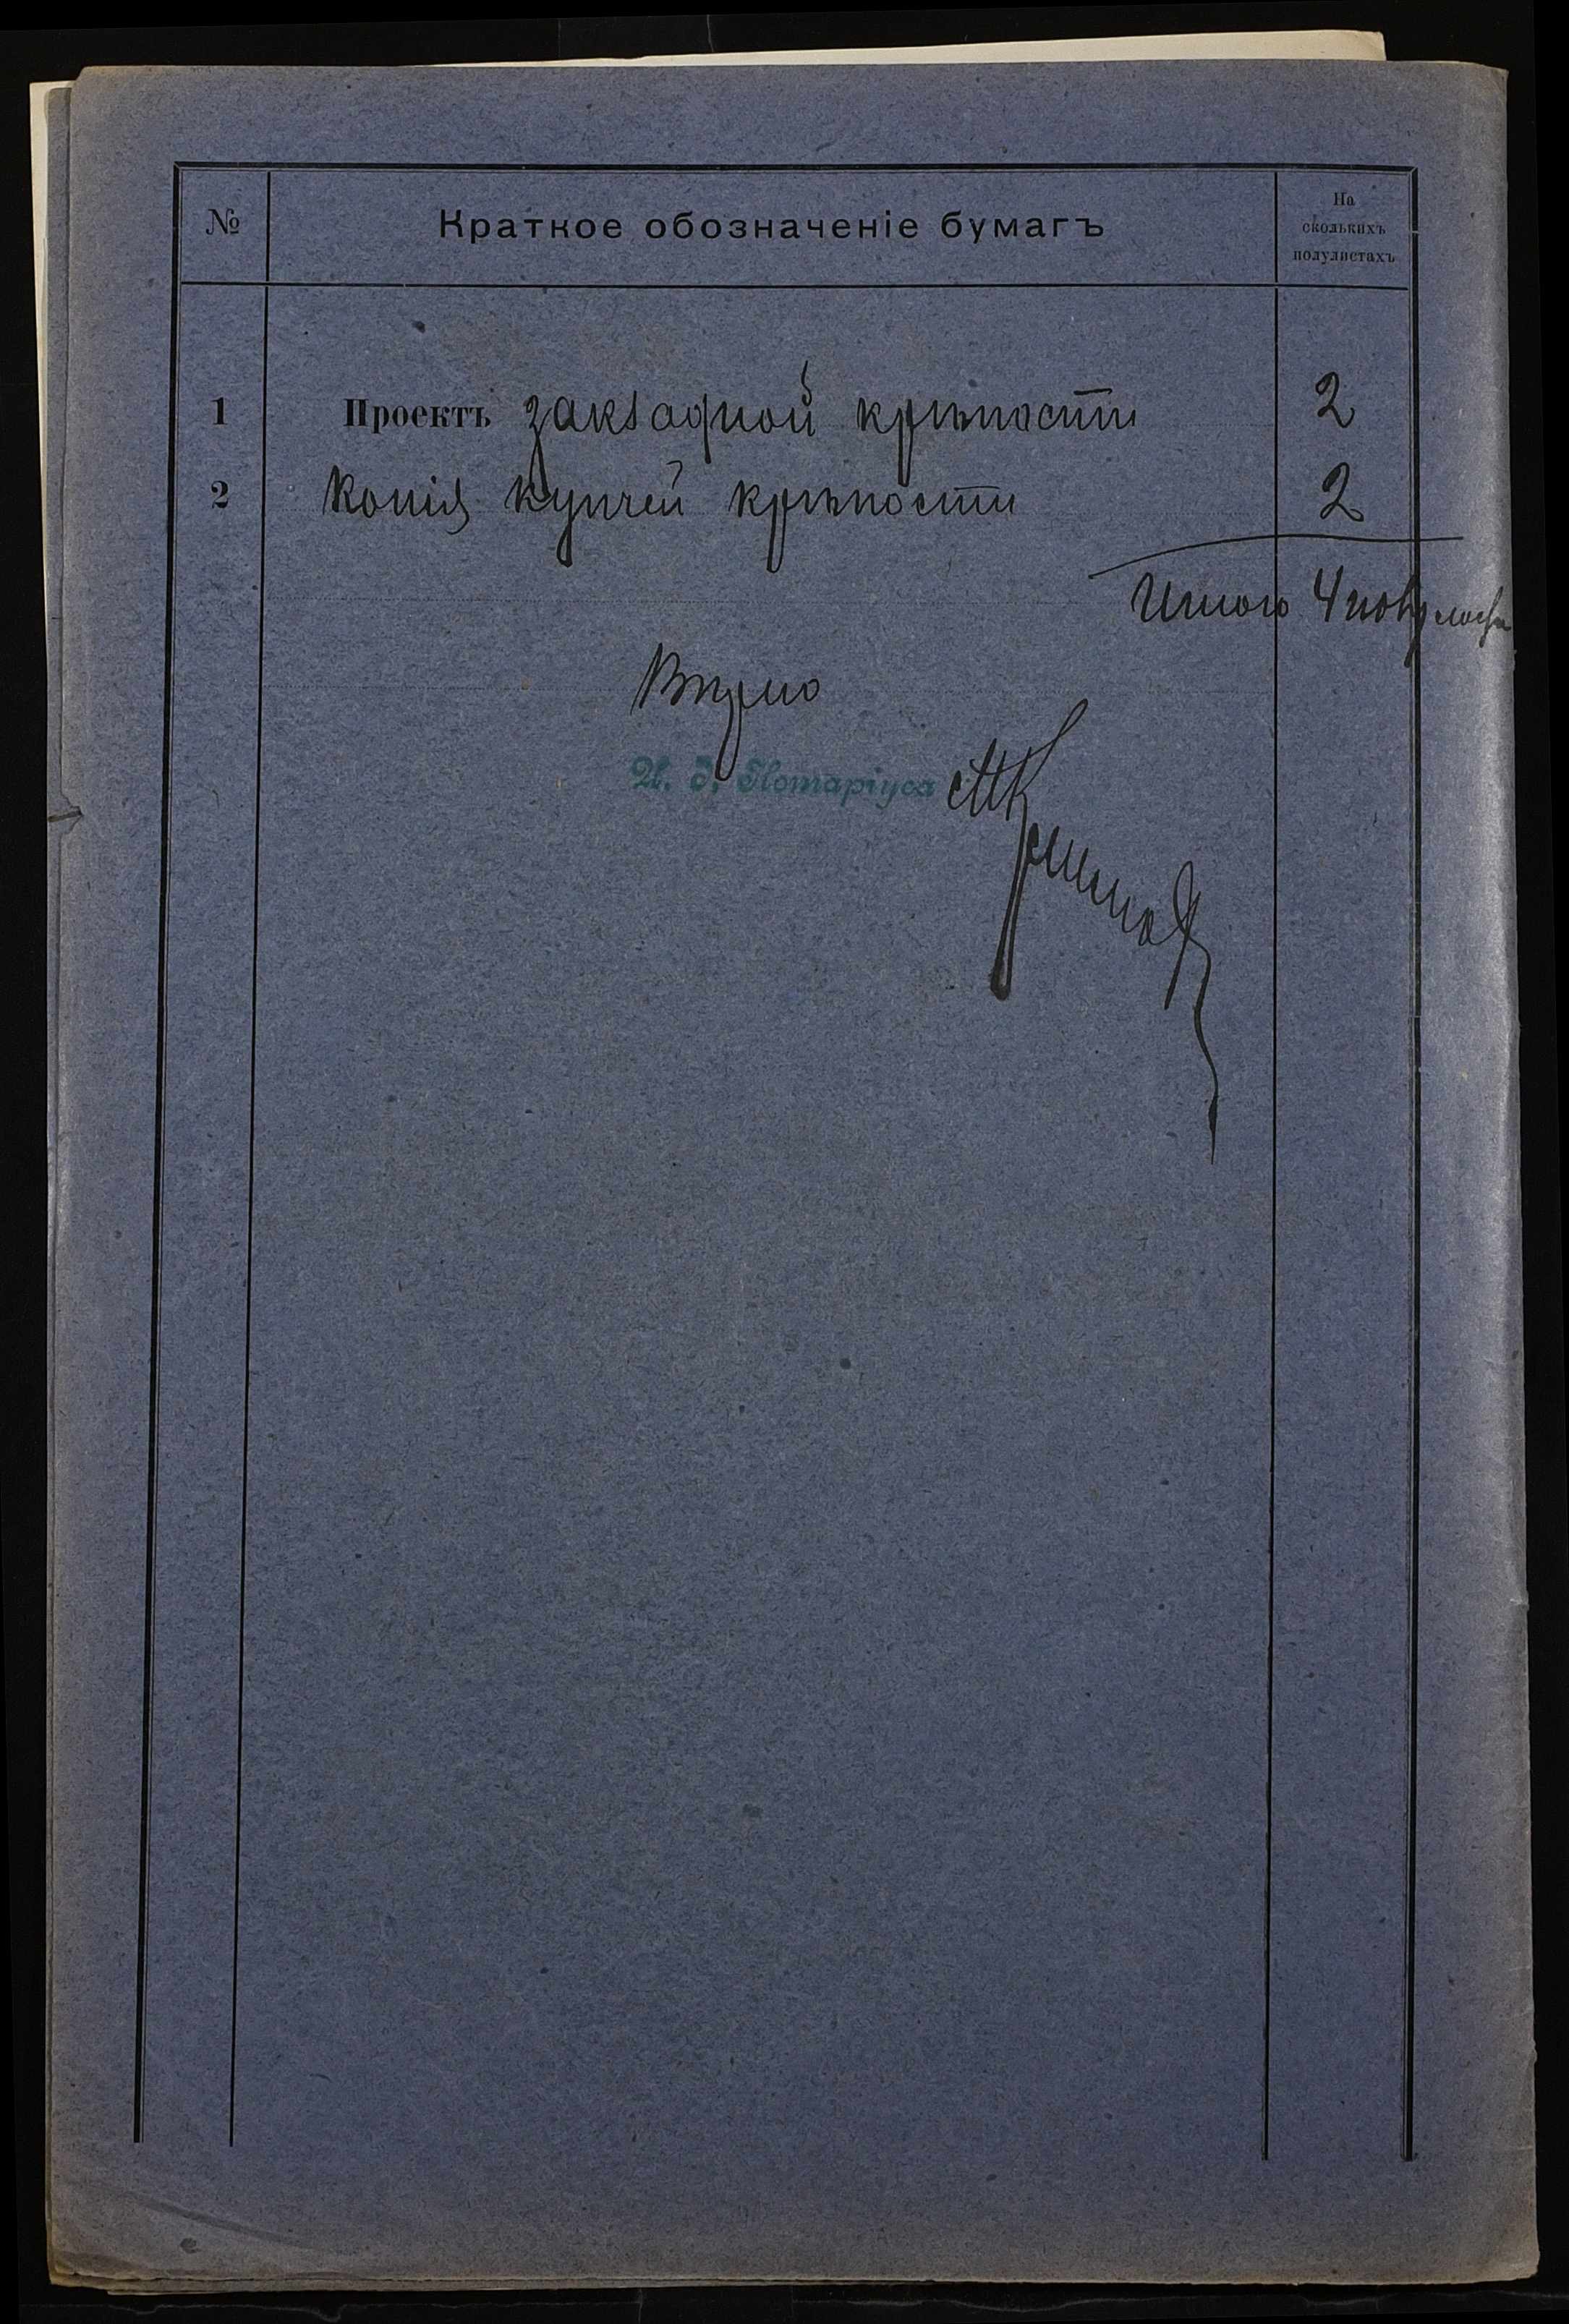 № Краткое обозначеніе бумагъ На сколькихъ полулистахъ
1 Проектъ закладной крѣпости 2
2 Копія купчей крѣпости 2
Итого 4 полулиста
Вѣрно
И. д. Нотаріуса